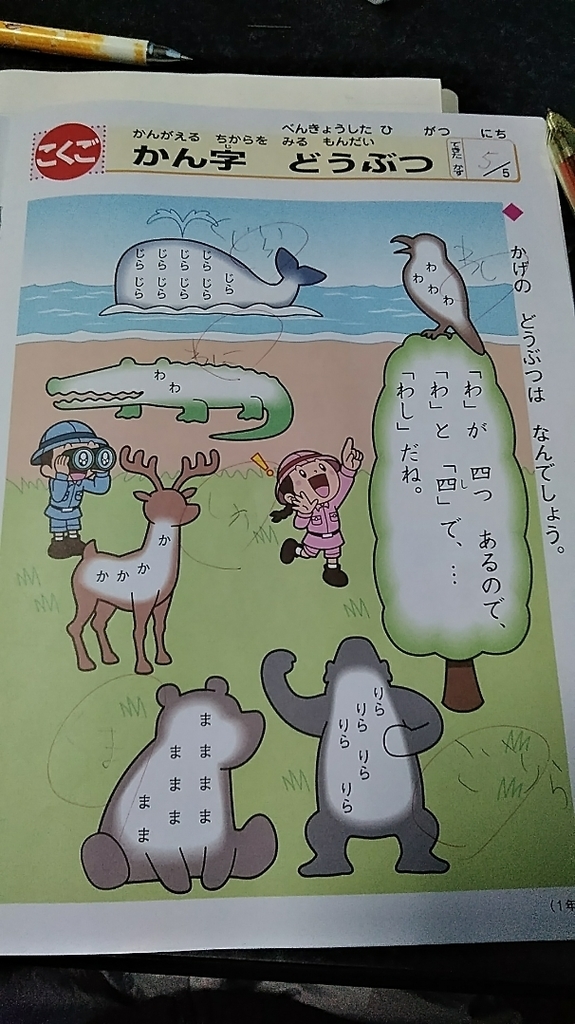 こくご
かんがえる ちからを みる もんだい
べんきょうした ひ がつ にち
かん字 どうぶつ
じ
できた かず
5/5
かげの どうぶつは なんでしょう。
じら じら じら じら
じら じら じら じら じら
わ わ わ わ
わ わ
「わ」が 四つ あるので、
「わ」と 「四」で、…
し
「わし」だね。
か か か か
ま ま ま ま ま ま ま ま ま
りら りら りら りら りら
(1年